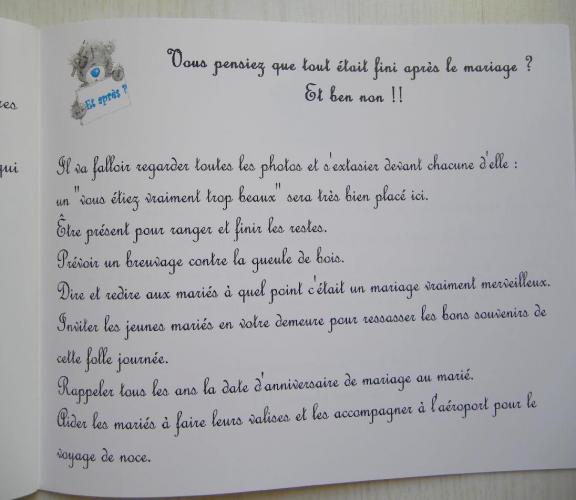 res
qui
Et après ?
Vous pensiez que tout était fini après le mariage ?
Et ben non !!
Il va falloir regarder toutes les photos et s'extasier devant chacune d'elle :
un "vous étiez vraiment trop beaux" sera très bien placé ici.
Être présent pour ranger et finir les restes.
Prévoir un breuvage contre la gueule de bois.
Dire et redire aux mariés à quel point c'était un mariage vraiment merveilleux.
Inviter les jeunes mariés en votre demeure pour ressasser les bons souvenirs de
cette folle journée.
Rappeler tous les ans la date d'anniversaire de mariage au marié.
Aider les mariés à faire leurs valises et les accompagner à l'aéroport pour le
voyage de noce.